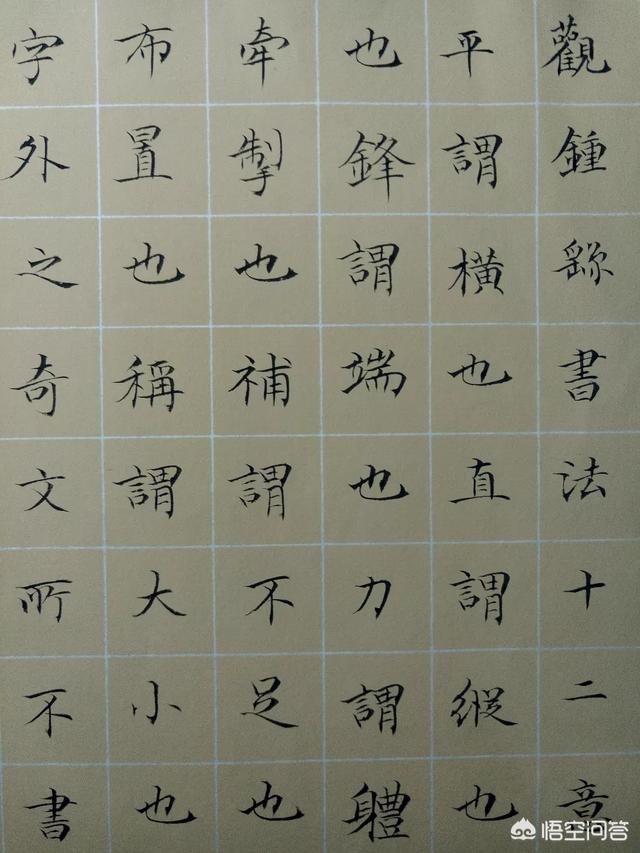 觀鍾繇書法十二意
平謂橫也直謂縱也
也鋒謂端也力謂體
牽掣也補謂不足也
布置也稱謂大小也
字外之奇文所不書
悟空问答